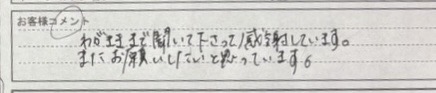 お客様コメント
わがままで聞いて下さって感謝しています。
またお願いしたいと思っています。